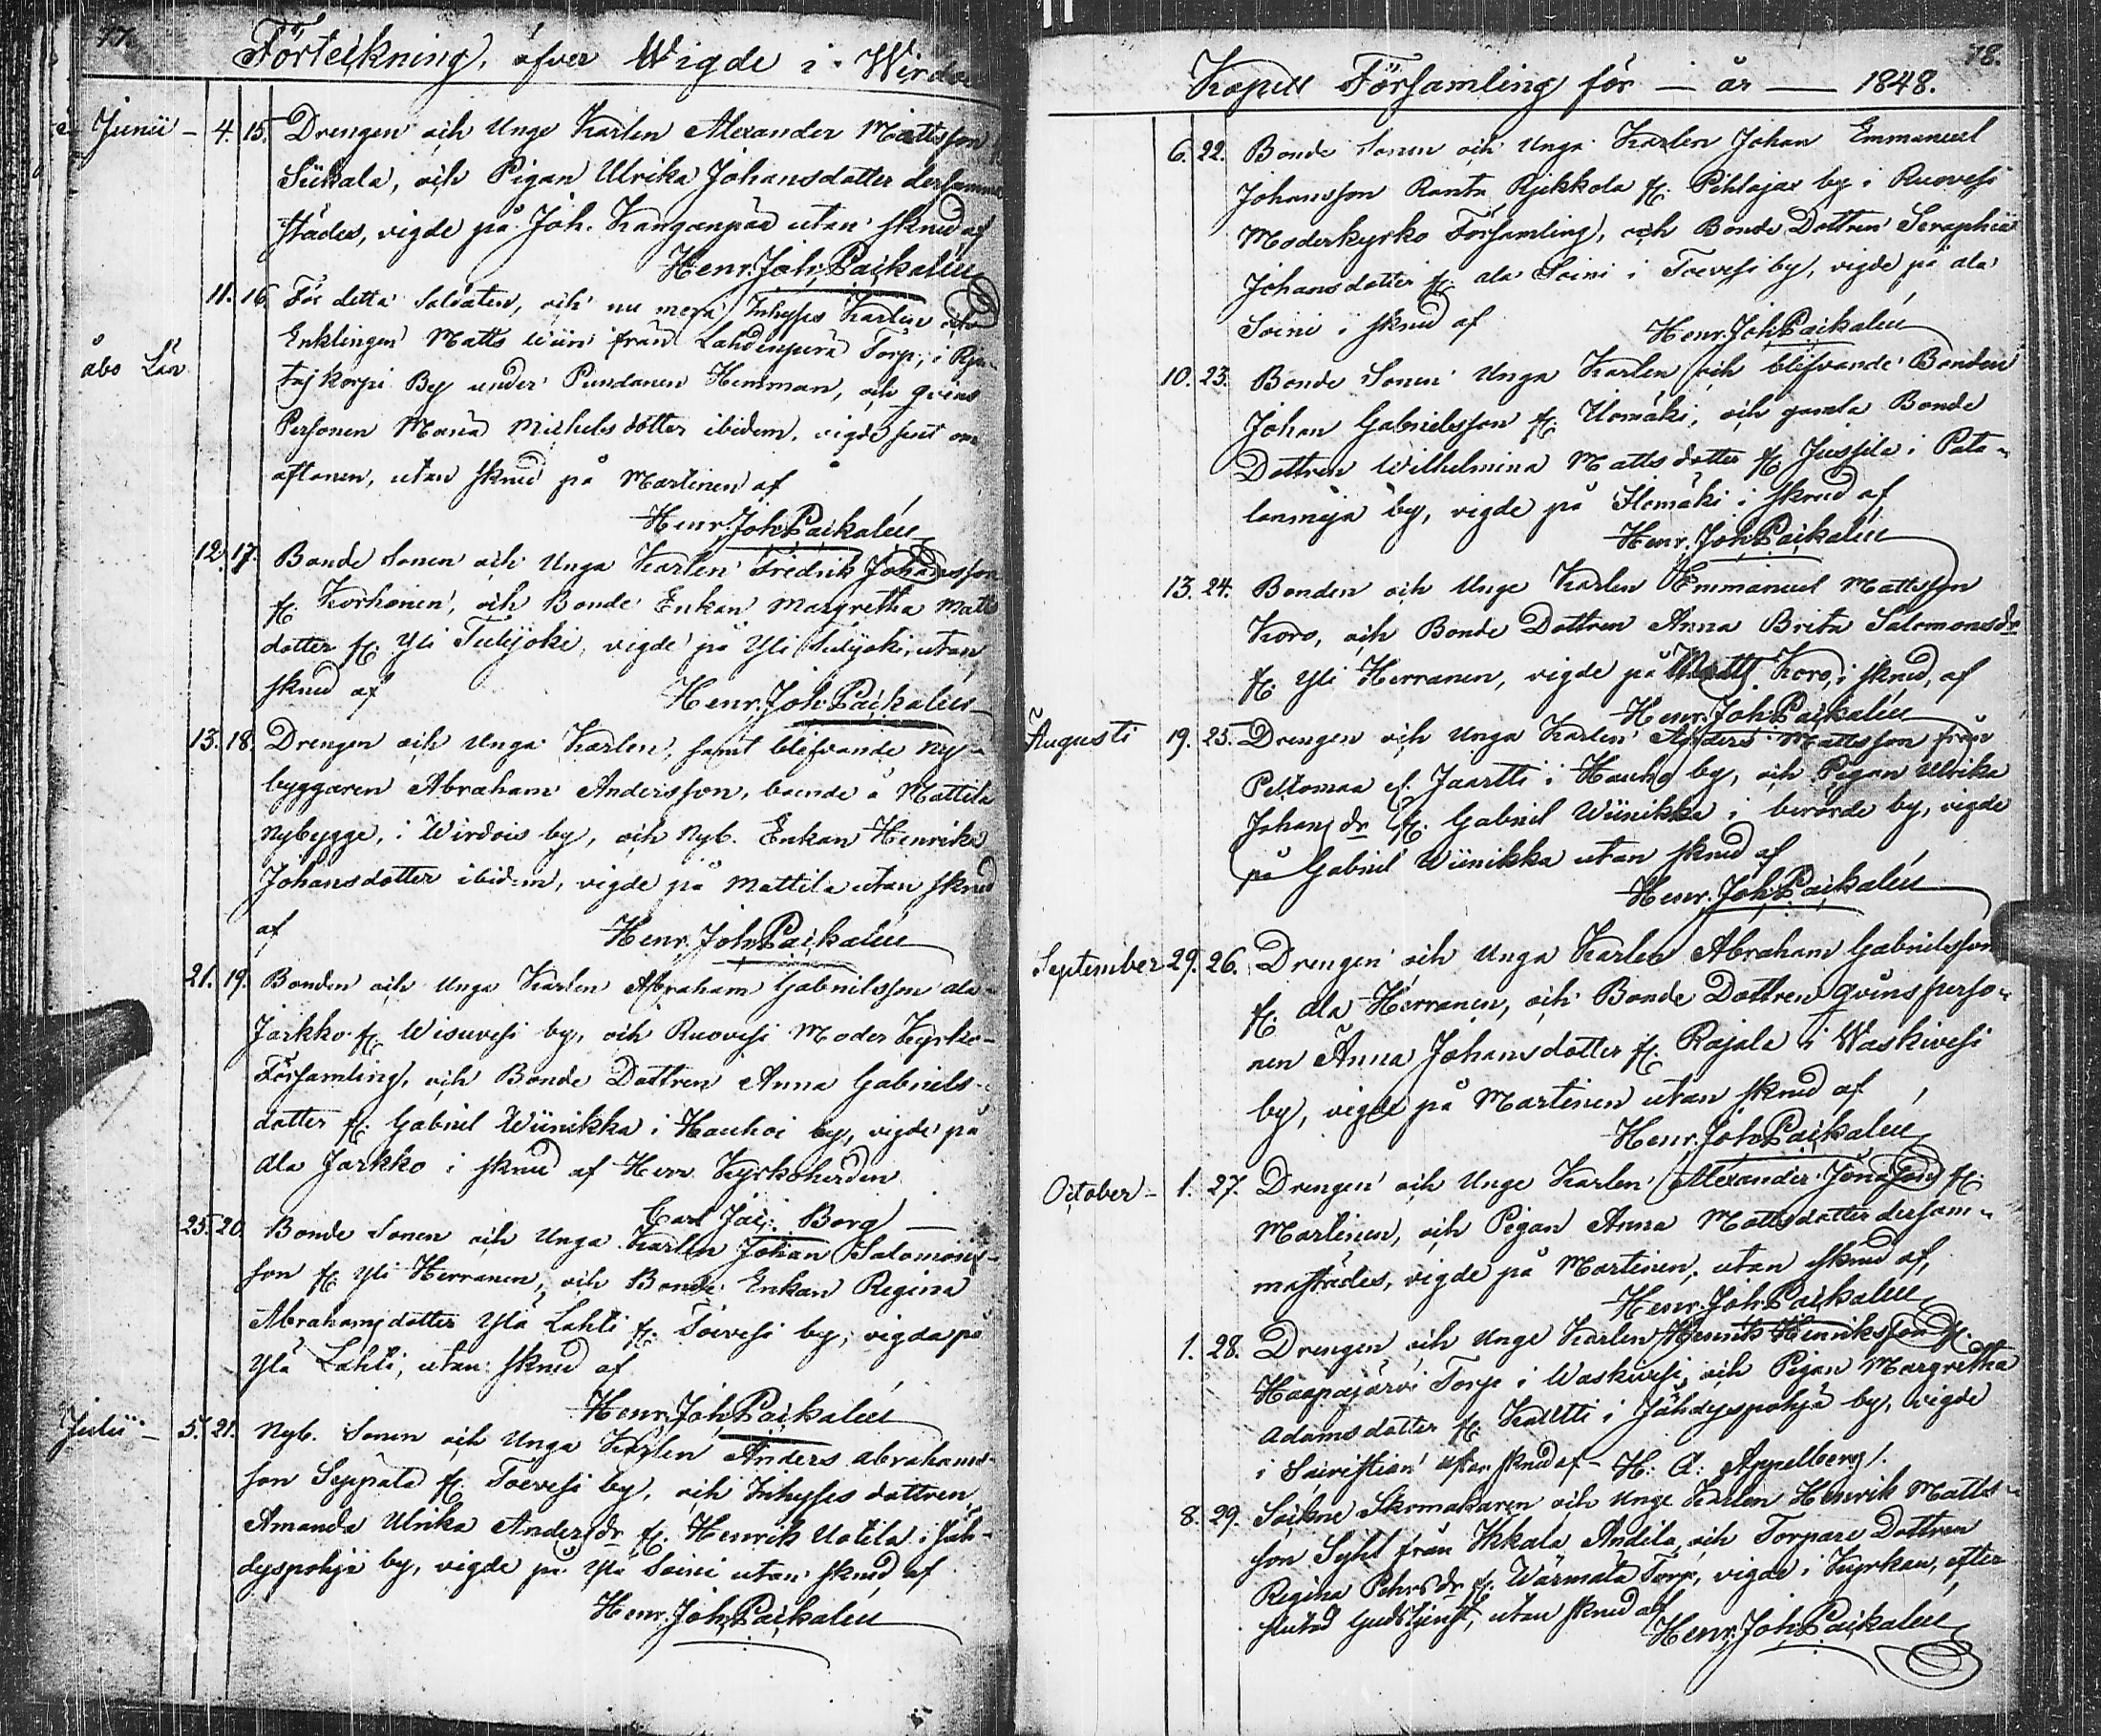 77.
Förteckning, öfver Wigde i Wirdois
Junii – 4. 15. Drengen och Unge Karlen Alexander Mattsson
Siikala, och Pigan Ulrika Johansdotter dersamma
städes, vigde på Joh. Kangaspää utan skrud af
Henr. Joh. Packalén
11. 16. För detta Soldaten, och nu mera Inhyses Karlen och
Enklingen Matts från Lahdenperä Torp, i
By under Hemman, och qvins
åbo Län
Personen Maria Michelsdotter ibidem, vigde sent om
aftonen, utan skrud på Martinen af
Henr. Joh. Packalén
12. 17. Bonde Sonen och Unga Karlen Fredrik Johansson
fr. Korhonen, och Bonde Enkan Margretha Matts
dotter fr. Yli Tulijoki, vigde på Yli Tulijoki, utan
skrud af Henr. Joh. Packalén
13. 18. Drengen och Unga Karlen, samt blifvande Ny-
byggaren Abraham Andersson, boende å Mattila
Nybygge, i Wirdois by, och Nyb. Enkan Henrika
Johansdotter ibidem, vigde på Mattila utan skrud
af Henr. Joh. Packalén
21. 19. Bonden och Unga Karlen Abraham Gabrielsson ala-
Jarkko fr. Wisuvesi by, och Ruovesi Moder Kyrko-
Församling, och Bonde Dottren Anna Gabriels-
dotter fr. Gabriel Wiinikka i Hauhoi by, vigde på
Ala Jarkko i skrud af Herr Kyrkoherden
Carl Jac: Borg –
25. 20. Bonde Sonen och Unga Karlen Johan Salomons-
son fr. Yli Herranen, och Bonde Enkan Regina
Abrahamsdotter Ylä Lahti fr. Toevesi by, vigda på
Ylä Lahti, utan skrud af
Henr. Joh. Packalén
Julii – 5. 21. Nyb. Sonen och Unga Karlen Anders Abrahams-
son Seppälä fr. Toevesi by, och Inhyses dottren
Amanda Ulrika Andersdr fr. Henrik Uotila i Jäh-
dyspohja by, vigde på Ylä Soini utan skrud af
Henr. Joh. Packalén
78.
Kapell Församling för – år — 1848.
6. 22. Bonde Sonen och Unga Karlen Johan Emmanuel
Johansson Ranta Rjekkola fr. Pihlajax by i Ruovesi
Moderkyrko Församling, och Bonde Dottren Seraphia
Johansdotter fr. ala Soini i Toevesi by, vigde på ala
Soini i skrud af Henr. Joh. Packalén
10. 23. Bonde Sonen Unga Karlen och blifvande Bonden
Johan Gabrielsson fr. Ilomäki, och gamla Bonde
Dottren Wilhelmina Mattsdotter fr. Jussila i Pata-
lanmeja by, vigde på Ilomäki i skrud af
Henr. Joh. Packalén
13. 24. Bonden och Unge Karlen Emmanuel Mattsson
Koro, och Bonde Dottren Anna Brita Salomonsdr
fr. Yli Herranen, vigde på Matts Koro, i skrud, af
Henr. Joh. Packalén
Augusti 19. 25. Drengen och Unga Karlen Anders Mattsson från
Peltomaa el. Jaartti i Hauho by, och Pigan Ulrika
Johansdr fr. Gabriel Wiinikka i berörde by, vigde
på Gabriel Wiinikka utan skrud af
Henr. Joh. Packalén
September 29. 26. Drengen och Unga Karlen Abraham Gabrielsson
fr. Ala Herranen, och Bonde Dottren qvinsperso-
nen Anna Johansdotter fr. Rajala i Waskivesi
by, vigde på Martinen utan skrud af
Henr. Joh. Packalén
October – 1. 27. Drengen och Unge Karlen Alexander Jonasson fr.
Martinen, och Pigan Anna Mattsdotter dersam-
mastädes, vigde på Martinen, utan skrud af,
Henr. Joh. Packalén
1. 28. Drengen och Unge Karlen Henrik Henriksson fr.
Haapajärvi Torp i Waskivesi, och Pigan Margretha
Adamsdotter fr. Kaltti i Jähdyspohja by, vigde
i Sacristian utan skrud af – H: A: Appelberg/.
8. 29. Sockne Skomakaren och Unge Karlen Henrik Matts-
son Syhl från Ikkala Andila, och Torpare Dottren
Regina Pehrsdr fr. Wärmälä Torp, vigde i Kyrkan, efter
slutad Gudstjenst, utan skrud af
Henr. Joh. Packalén